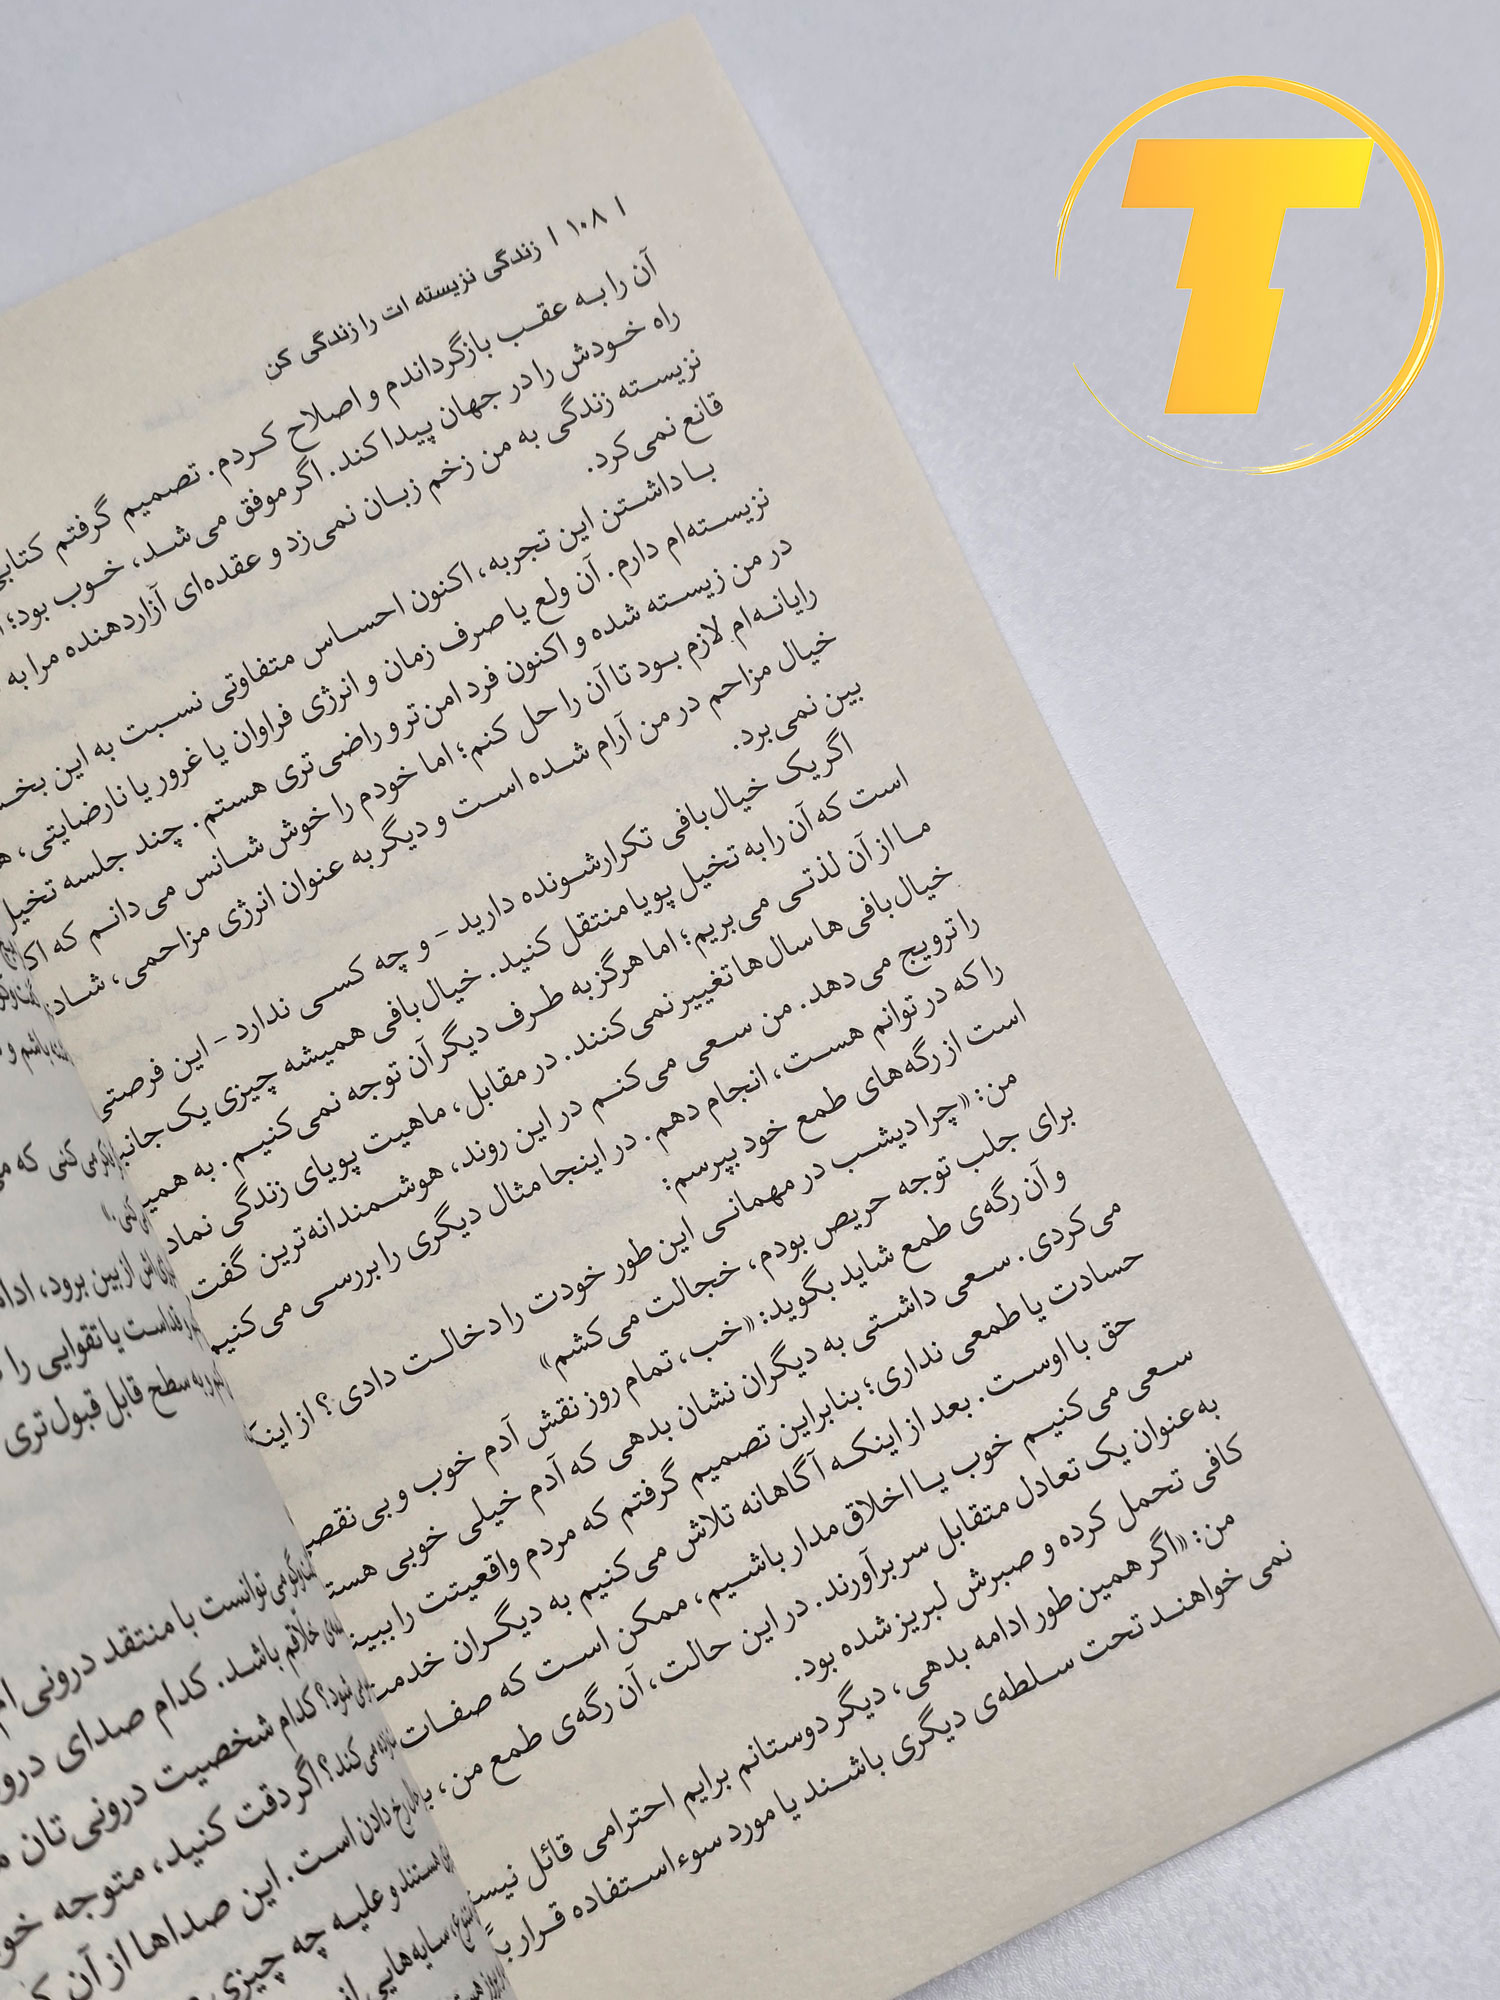 | ۱۰۸ | زندگی نزیسته ات را زندگی کن
آن را به عقب بازگرداندم و اصلاح کردم. تصمیم گرفتم
راه خودش را در جهان پیدا کند. اگر موفق می‌شد، خوب بود؛
نزیسته زندگی به من زخم زبان نمی‌زد و عقده‌ای آزاردهنده مرا به
قانع نمی‌کرد.
با داشتن این تجربه، اکنون احساس متفاوتی نسبت به این
نزیسته‌ام دارم. آن ولع یا صرف زمان و انرژی فراوان یا غرور یا نارضایتی،
در من زیسته شده و اکنون فرد امن‌تر و راضی‌تری هستم. چند جلسه تخیل
رایانه‌ام لازم بود تا آن را حل کنم؛ اما خودم را خوش شانس می‌دانم که
خیال مزاحم در من آرام شده است و دیگر به عنوان انرژی مزاحمی،
بین نمی‌برد.
اگر یک خیال‌بافی تکرارشونده دارید - و چه کسی ندارد - این فرصتی
است که آن را به تخیل پویا منتقل کنید. خیال‌بافی همیشه چیزی یک
ما از آن لذتی می‌بریم؛ اما هرگز به طرف دیگر آن توجه نمی‌کنیم. به
خیال‌بافی‌ها سال‌ها تغییر نمی‌کنند. در مقابل، ماهیت پویای زندگی
را ترویج می‌دهد. من سعی می‌کنم در این روند، هوشمندانه‌ترین
را که در توانم هست، انجام دهم. در اینجا مثال دیگری را بررسی می‌کنیم
است از رگه‌های طمع خود بپرسم:
من: «چرا دیشب در مهمانی این طور خودت را دخالت دادی؟ از
برای جلب توجه حریص بودم، خجالت می‌کشم»
و آن رگه‌ی طمع شاید بگوید: «خب، تمام روز نقش آدم خوب و
می‌کردی. سعی داشتی به دیگران نشان بدهی که آدم خیلی خوبی
حسادت یا طمعی نداری؛ بنابراین تصمیم گرفتم که مردم واقعیتت را
حق با اوست. بعد از اینکه آگاهانه تلاش می‌کنیم به دیگران
سعی می‌کنیم خوب یا اخلاق‌مدار باشیم، ممکن است که صفات
به عنوان یک تعادل متقابل سر برآورند. در این حالت، آن رگه‌ی طمع من،
کافی تحمل کرده و صبرش لبریز شده بود.
من: «اگر همین طور ادامه بدهی، دیگر دوستانم برایم احترامی قائل
نمی‌خواهند تحت سلطه‌ی دیگری باشند یا مورد سوءاستفاده قرار
باشم و
می کنی که
کنی.»
از بین برود،
یا تقوایی را
به سطح قابل قبول تری
می توانست با منتقد درونی
خلاقم باشد. کدام صدای
شود؟ کدام شخصیت درونی تان
می کند؟ اگر دقت کنید، متوجه
رخ دادن است. این صداها از آن
هستند و علیه چه چیزی
سایه‌هایی
T